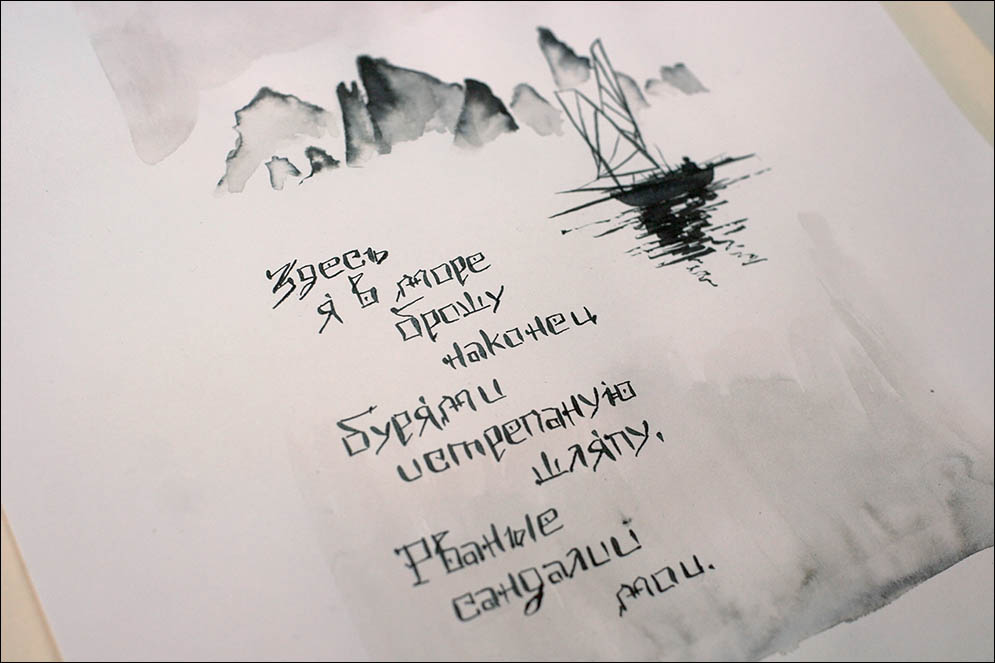 Здесь
я в море
брошу
наконец
бурями
истрепаную
шляпу.
Рваные
сандалии
мои.